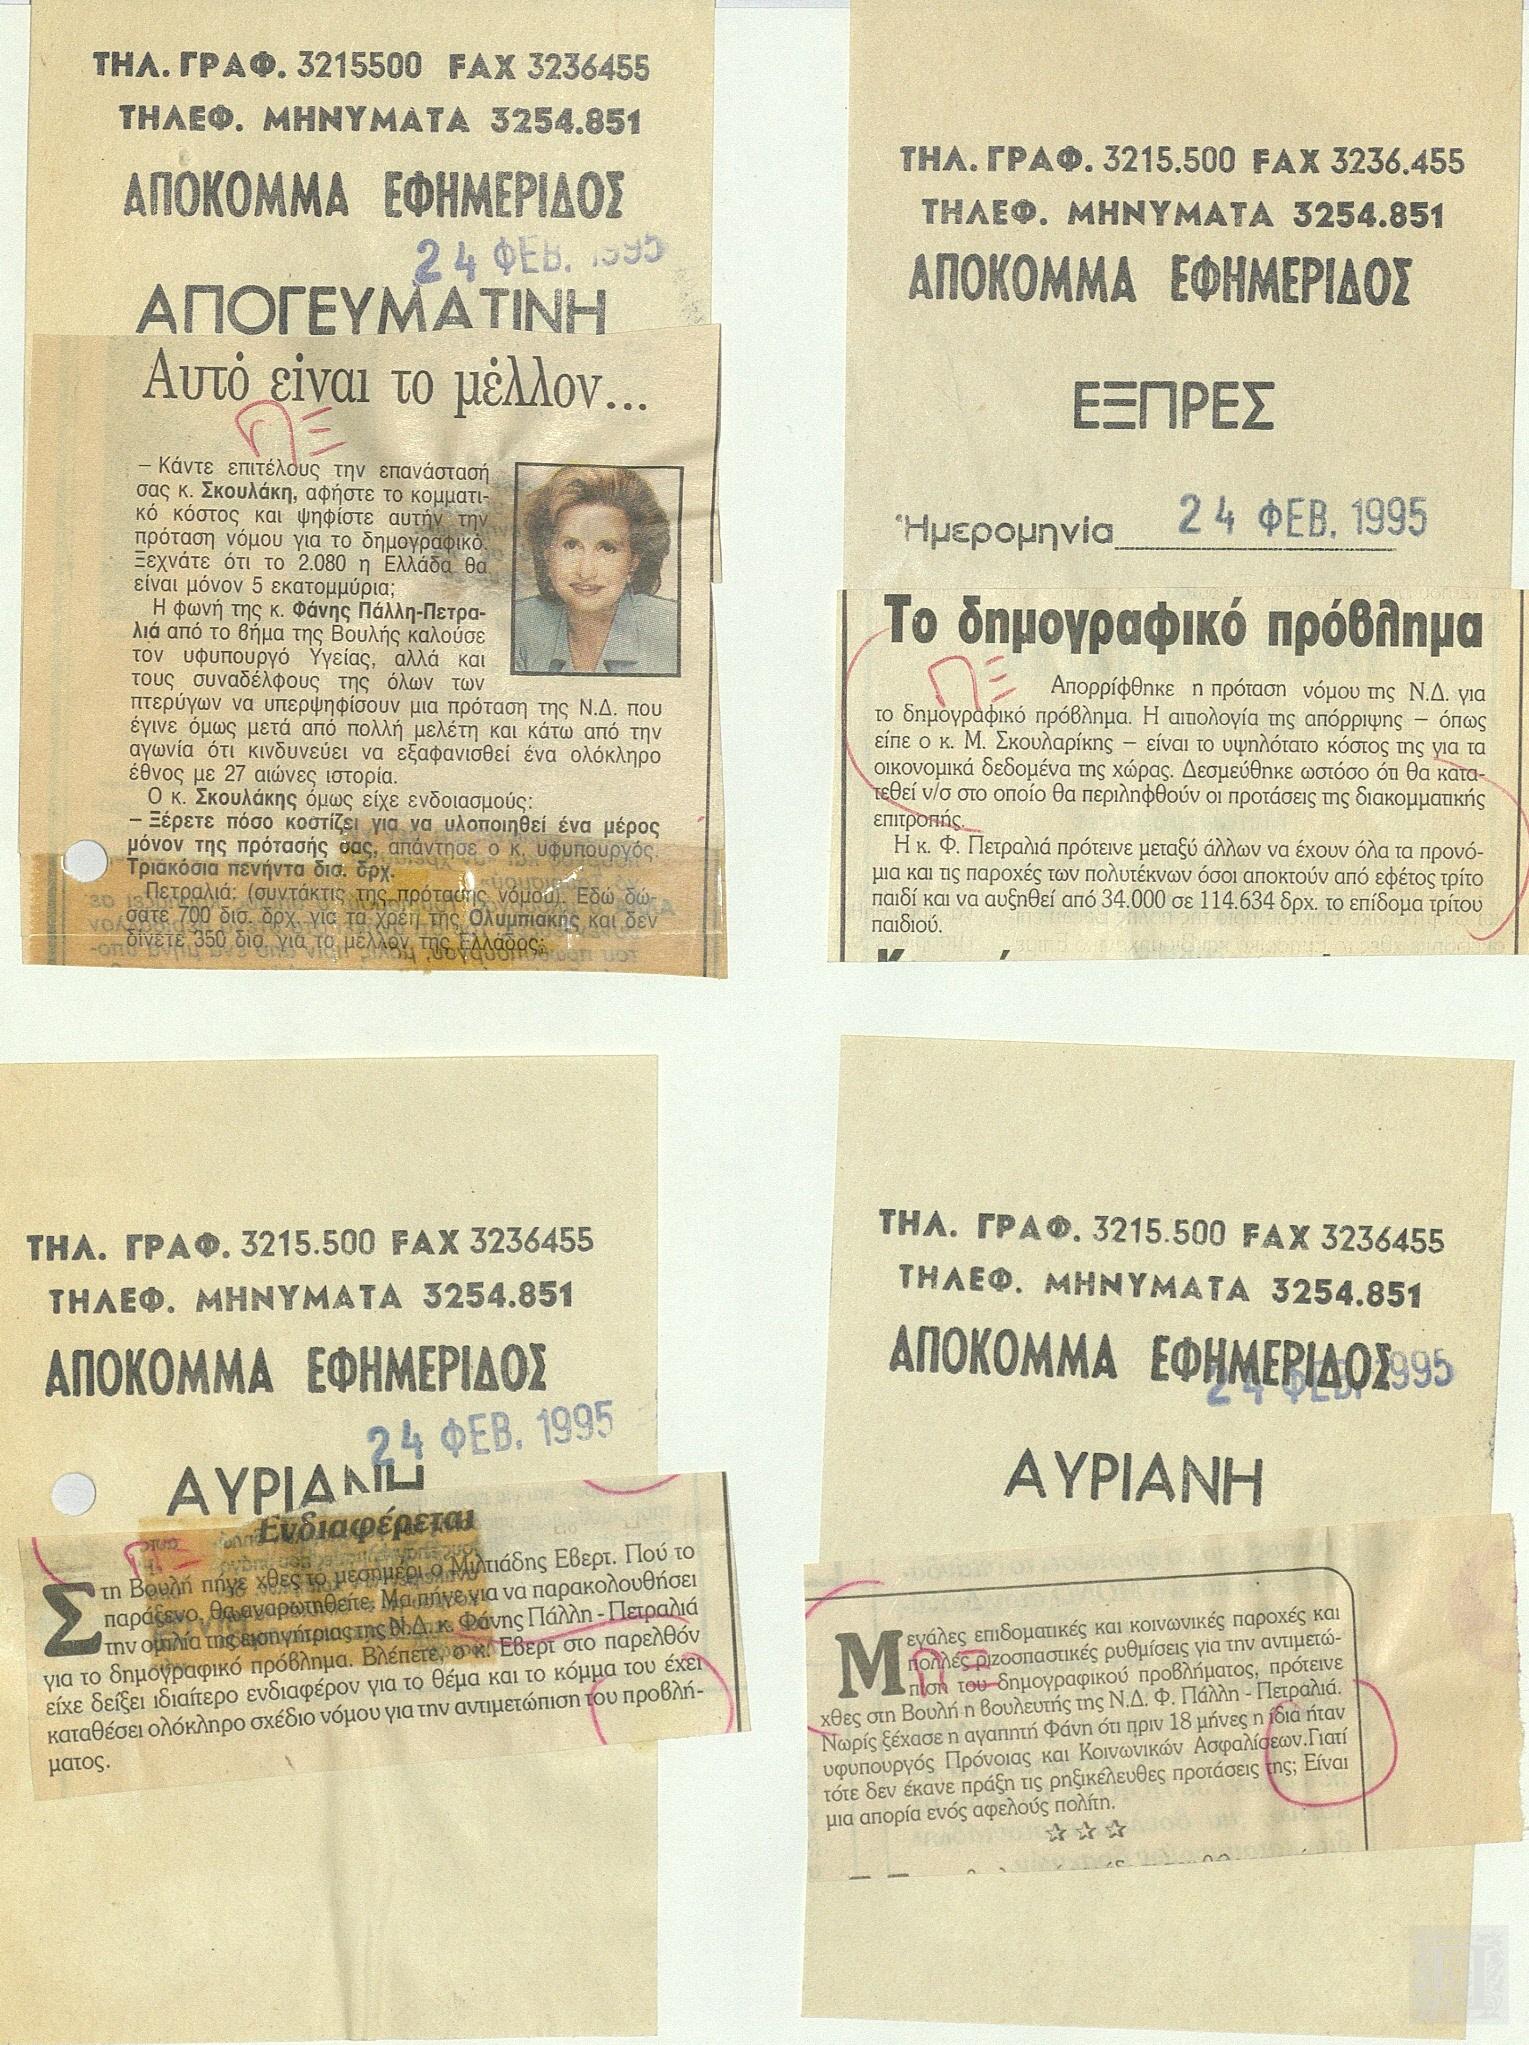 ΤΗΛ. ΓΡΑΦ. 3215500 FAX 3236455
ΤΗΛΕΦ. ΜΗΝΥΜΑΤΑ 3254.851
ΑΠΟΚΟΜΜΑ ΕΦΗΜΕΡΙΔΟΣ
24 ΦΕΒ. 1995
ΑΠΟΓΕΥΜΑΤΙΝΗ
Αυτό είναι το μέλλον...
ΠΞ
– Κάντε επιτέλους την επανάστασή
σας κ. Σκουλάκη, αφήστε το κομματι-
κό κόστος και ψηφίστε αυτήν την
πρόταση νόμου για το δημογραφικό.
Ξεχνάτε ότι το 2.080 η Ελλάδα θα
είναι μόνον 5 εκατομμύρια;
Η φωνή της κ. Φάνης Πάλλη-Πετρα-
λιά από το βήμα της Βουλής καλούσε
τον υφυπουργό Υγείας, αλλά και
τους συναδέλφους της όλων των
πτερύγων να υπερψηφίσουν μια πρόταση της Ν.Δ. που
έγινε όμως μετά από πολλή μελέτη και κάτω από την
αγωνία ότι κινδυνεύει να εξαφανισθεί ένα ολόκληρο
έθνος με 27 αιώνες ιστορία.
Ο κ. Σκουλάκης όμως είχε ενδοιασμούς:
– Ξέρετε πόσο κοστίζει για να υλοποιηθεί ένα μέρος
μόνον της πρότασής σας, απάντησε ο κ. υφυπουργός.
Τριακόσια πενήντα δισ. δρχ.
Πετραλιά: (συντάκτις της πρότασης νόμου). Εδώ δώ-
σατε 700 δισ. δρχ. για τα χρέη της Ολυμπιακής και δεν
δίνετε 350 δισ. για το μέλλον της Ελλάδας;
ΤΗΛ. ΓΡΑΦ. 3215.500 FAX 3236.455
ΤΗΛΕΦ. ΜΗΝΥΜΑΤΑ 3254.851
ΑΠΟΚΟΜΜΑ ΕΦΗΜΕΡΙΔΟΣ
ΕΞΠΡΕΣ
Ἡμερομηνία 24 ΦΕΒ. 1995
Το δημογραφικό πρόβλημα
ΠΞ
Απορρίφθηκε η πρόταση νόμου της Ν.Δ. για
το δημογραφικό πρόβλημα. Η αιτιολογία της απόρριψης – όπως
είπε ο κ. Μ. Σκουλαρίκης – είναι το υψηλότατο κόστος της για τα
οικονομικά δεδομένα της χώρας. Δεσμεύθηκε ωστόσο ότι θα κατα-
τεθεί ν/σ στο οποίο θα περιληφθούν οι προτάσεις της διακομματικής
επιτροπής.
Η κ. Φ. Πετραλιά πρότεινε μεταξύ άλλων να έχουν όλα τα προνό-
μια και τις παροχές των πολυτέκνων όσοι αποκτούν από εφέτος τρίτο
παιδί και να αυξηθεί από 34.000 σε 114.634 δρχ. το επίδομα τρίτου
παιδιού.
ΤΗΛ. ΓΡΑΦ. 3215.500 FAX 3236455
ΤΗΛΕΦ. ΜΗΝΥΜΑΤΑ 3254.851
ΑΠΟΚΟΜΜΑ ΕΦΗΜΕΡΙΔΟΣ
24 ΦΕΒ. 1995
ΑΥΡΙΑΝΗ
Ενδιαφέρεται
ΠΞ
Στη Βουλή πήγε χθες το μεσημέρι ο Μιλτιάδης Εβερτ. Πού το
παράξενο, θα αναρωτηθείτε. Μα πήγε για να παρακολουθήσει
την ομιλία της εισηγήτριας της Ν.Δ. κ. Φάνης Πάλλη - Πετραλιά
για το δημογραφικό πρόβλημα. Βλέπετε, ο κ. Εβερτ στο παρελθόν
είχε δείξει ιδιαίτερο ενδιαφέρον για το θέμα και το κόμμα του έχει
καταθέσει ολόκληρο σχέδιο νόμου για την αντιμετώπιση του προβλή-
ματος.
ΤΗΛ. ΓΡΑΦ. 3215.500 FAX 3236455
ΤΗΛΕΦ. ΜΗΝΥΜΑΤΑ 3254.851
ΑΠΟΚΟΜΜΑ ΕΦΗΜΕΡΙΔΟΣ
24 ΦΕΒ. 1995
ΑΥΡΙΑΝΗ
Μεγάλες επιδοματικές και κοινωνικές παροχές και
πολλές ριζοσπαστικές ρυθμίσεις για την αντιμετώ-
πιση του δημογραφικού προβλήματος, πρότεινε
χθες στη Βουλή η βουλευτής της Ν.Δ. Φ. Πάλλη - Πετραλιά.
Νωρίς ξέχασε η αγαπητή Φάνη ότι πριν 18 μήνες η ίδια ήταν
υφυπουργός Πρόνοιας και Κοινωνικών Ασφαλίσεων. Γιατί
τότε δεν έκανε πράξη τις ρηξικέλευθες προτάσεις της; Είναι
μια απορία ενός αφελούς πολίτη.
ΠΞ